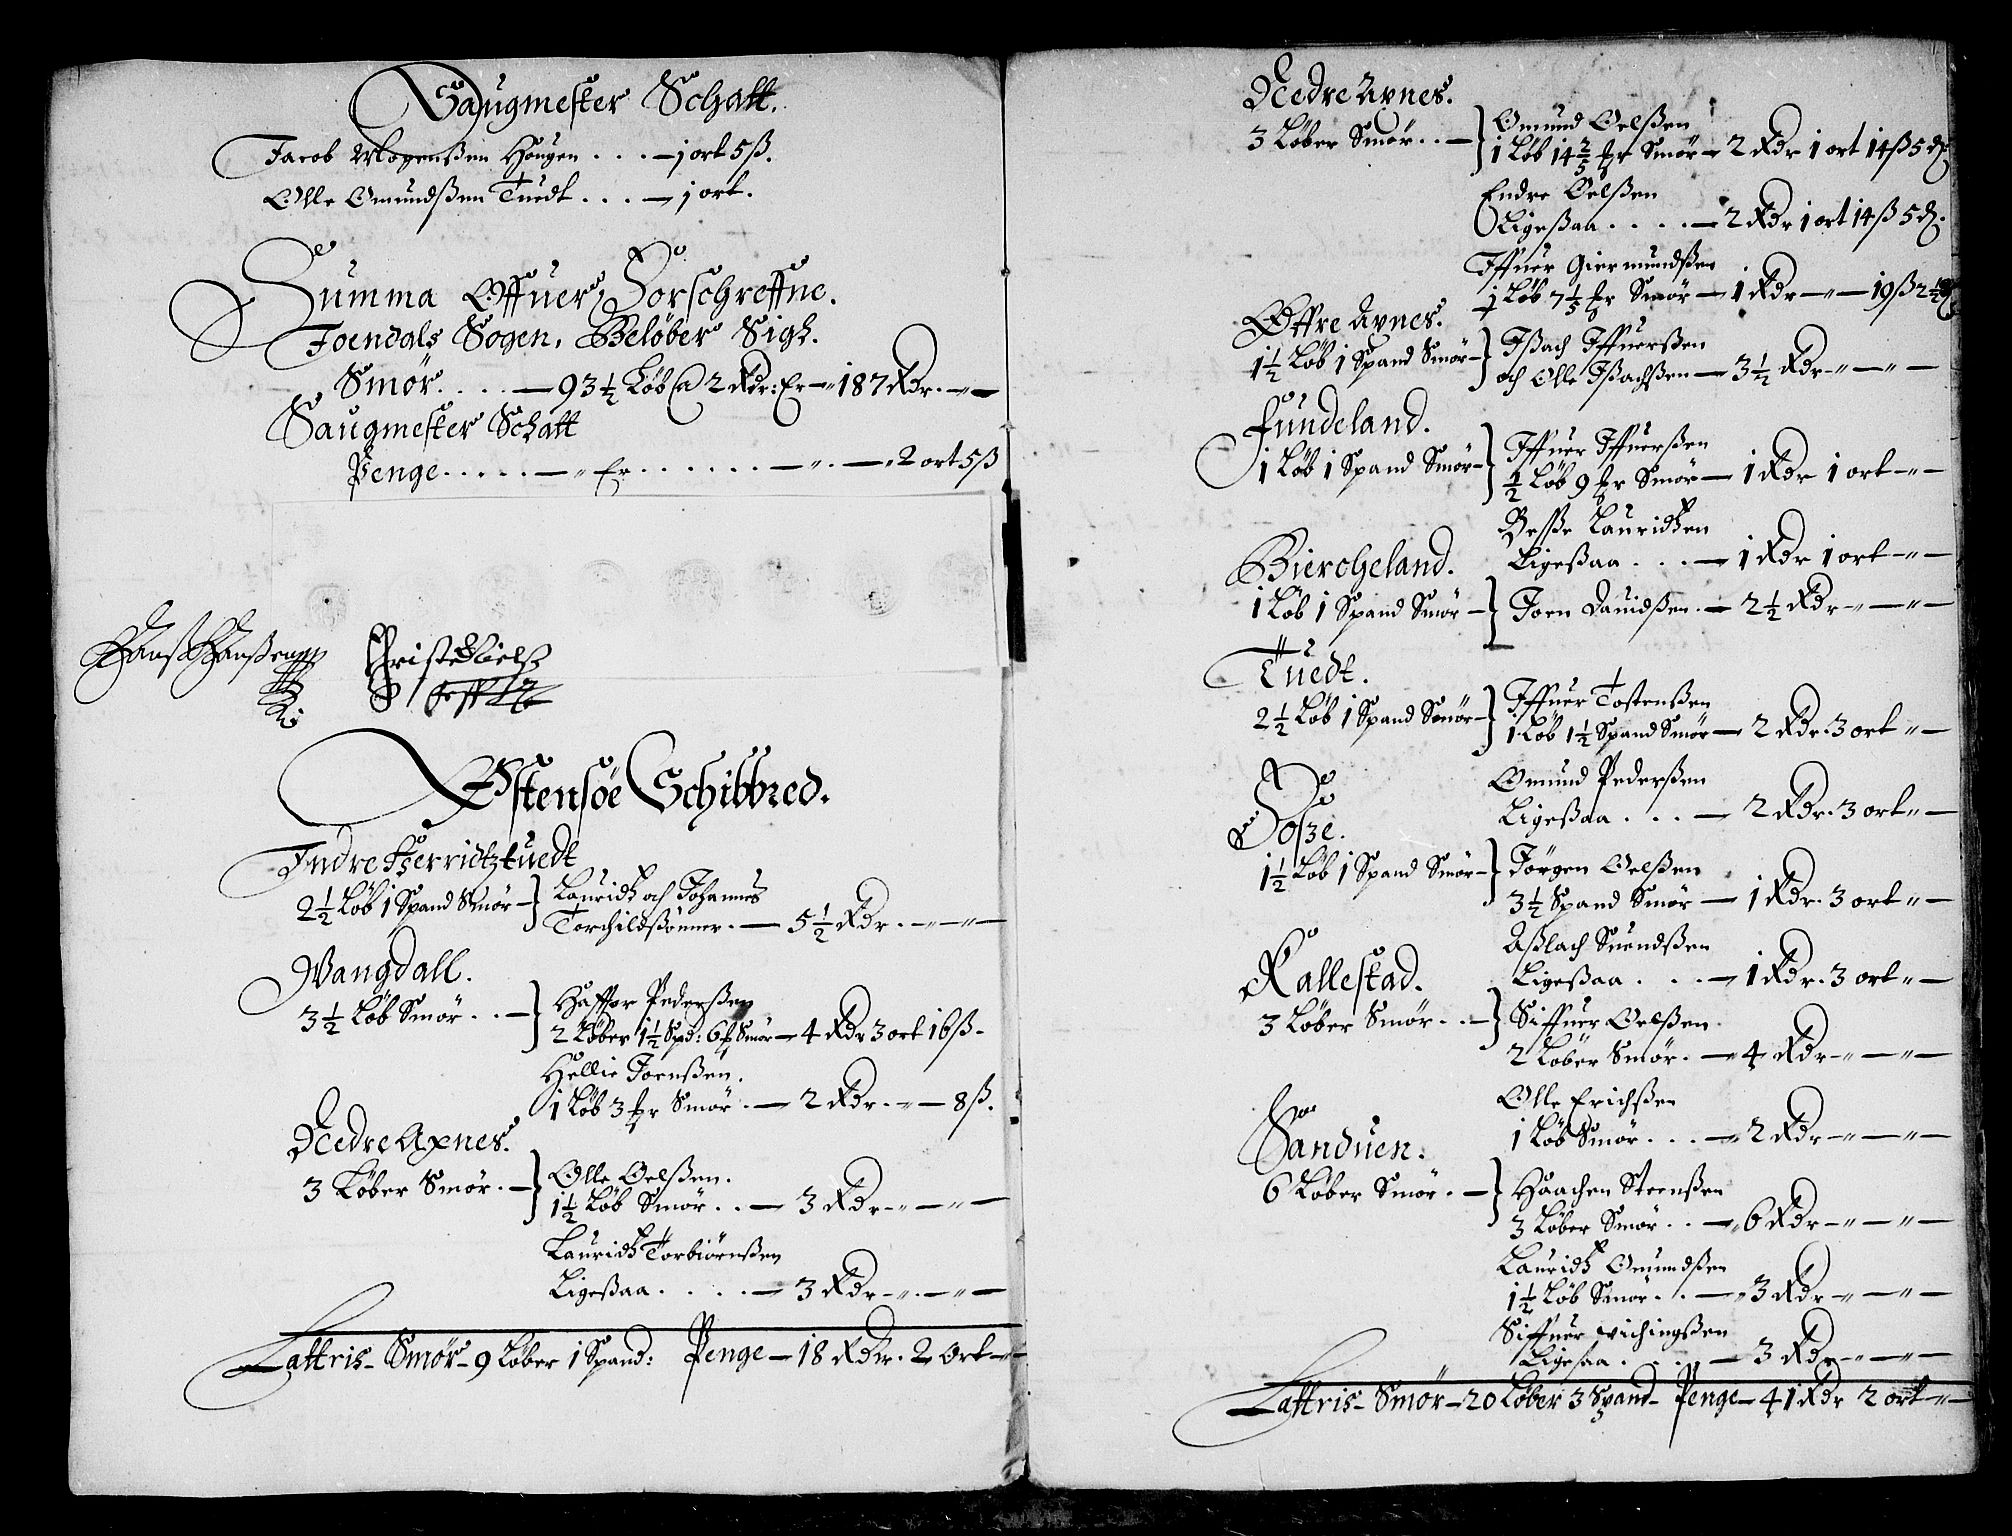 Saugmester Schatt.
Jacob Mogenßen Hougen . . . — 1 ort 5 ß.
Olle Omundßen Tuedt . . . — 1 ort.
Summa Offuer, Forschreffne.
Joendals Sogen, Beløber Sigh.
Smör. . . . — 93 1/2 Løb @ 2 Rdr: Er — " 187 Rdr. — " —
Saugmester Schatt
Penge . . . . . — " Er . . . . . . — " . — " 2 ort 5 ß
Hanß Hanßen
Christe Nielß
Østensöe Schibbred.
Indre Herridtztuedt
2 1/2 Løb 1 Spand Smör — } Lauridtz och Johannes
Torchildßönner. — 5 1/2 Rdr. — " — " —
Wangdall.
3 1/2 Løb Smör . . — } Haffor Pederßen
2 Løber 1 1/2 Spd: 6 Smör — 4 Rdr 3 ort 16 ß —
Hellie Joenßen.
1 Løb 3 Smör . — 2 Rdr. — " — 8 ß.
Nedre Axnes.
3 Løber Smör . — } Olle Oelßen.
1 1/2 Løb Smör . . — 3 Rdr — " — " —
Lauridtz Torbiörnßen
Ligeßaa . . . . — 3 Rdr — " — " —
Lattris — Smör — 9 Løber 1 Spand: Penge — 18 Rdr. 2 Ort — " —
Nedre Axnes.
3 Løber Smör . . — } Omund Oelßen
1 Løb 14 2/5 Smör — 2 Rdr 1 ort 14 ß 5 d
Endre Oelßen
Ligeßaa . . . . — 2 Rdr 1 ort 14 ß 5 d.
Iffuer Giermundßen
1 Løb 7 1/5 Smör — 1 Rdr — " — 19 ß 2 1/2 d
Øffre Axnes.
1 1/2 Løb 1 Spand Smör — } Ißach Iffuerßen
och Olle Ißachßen — 3 1/2 Rdr — " — " —
Fundeland.
1 Løb 1 Spand Smör — } Iffuer Iffuerßen
1/2 Løb 9 Smör — 1 Rdr 1 ort — " —
Lauridtzen
Ligeßaa . . . — 1 Rdr 1 ort — " —
Biercheland.
1 Løb 1 Spand Smör — } Joen Dauidßen . — 2 1/2 Rdr — " — " —
Tuedt.
2 1/2 Løb 1 Spand Smör — } Iffuer Tostenßen
1 Løb 1 1/2 Spand Smör — 2 Rdr. 3 ort — " —
Omund Pederßen
Ligeßaa . . . — 2 Rdr. 3 ort " —
Foße.
1 1/2 Løb 1 Spand Smör — } Jörgen Oelßen
3 1/2 Spand Smör — 1 Rdr. 3 ort " —
Aßlach Suendßen
Ligeßaa . . . — 1 Rdr. 3 ort " —
Kallestad.
3 Løber Smör . . — } Siffuer Oelßen
2 Løber Smör . — 4 Rdr — " — " —
Olle Erichßen
1 Løb Smör . . . — 2 Rdr — " — " —
Sanduen.
6 Løber Smör . — } Haachen Steenßen
3 Løber Smör . . — " 6 Rdr — " — " —
Lauridtz Omundßen
1 1/2 Løb Smör . . — " 3 Rdr — " — " —
Siffuer Wichingßen
Ligesaa . . . . — 3 Rdr — " — " —
Lattris — Smör — 20 Løber 3 Spand — Penge — 41 Rdr 2 ort — " —